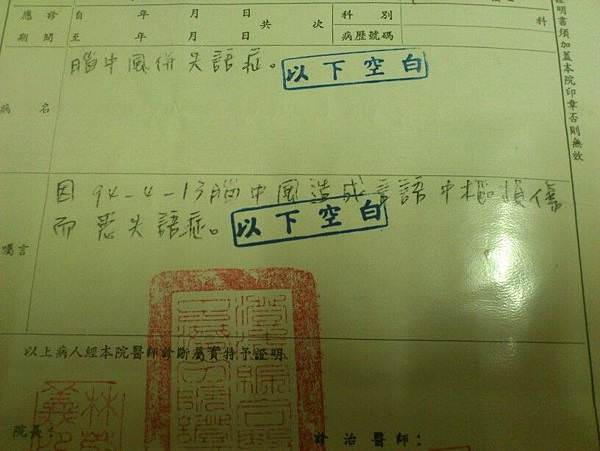 應診 自 年 月 日 共 次 科別 科
期間 至 年 月 日 病歷號碼
證明書須加蓋本院印章否則無效
病名
腦中風併失語症。
以下空白
醫囑
因94-4-13腦中風造成言語中樞損傷
而患失語症。
以下空白
以上病人經本院醫師診斷屬實特予證明
院長:
診治醫師: